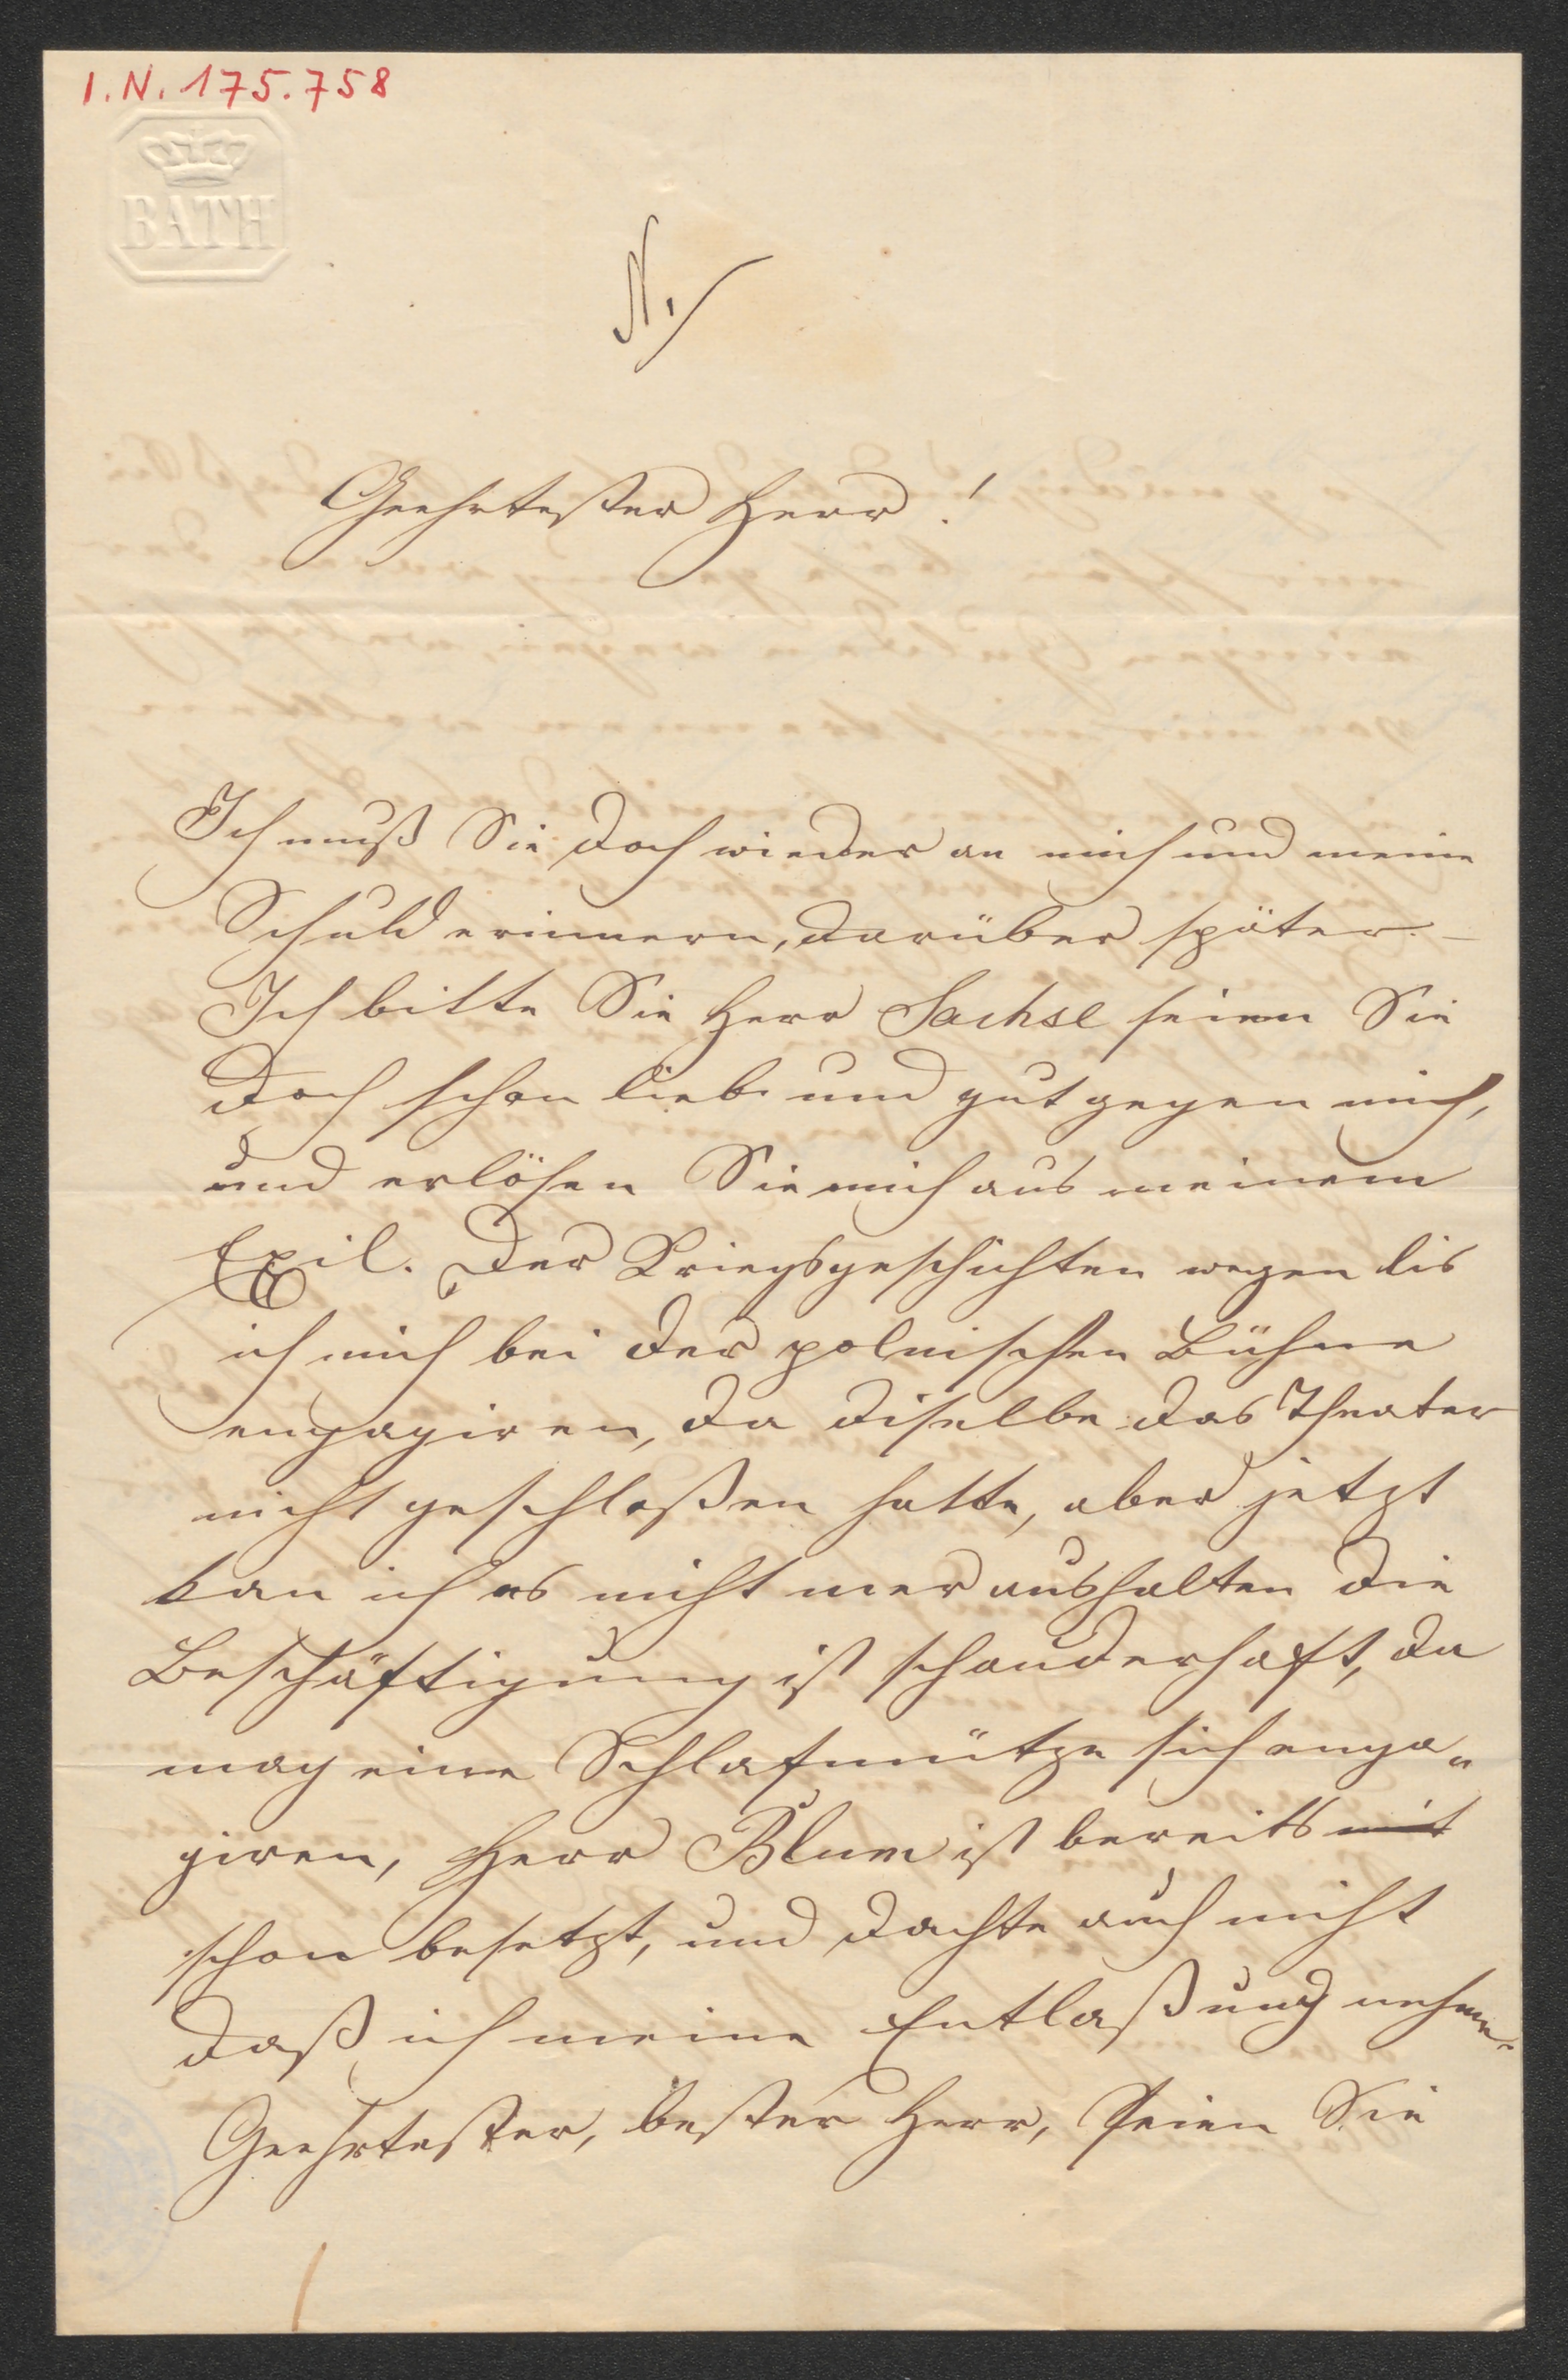 I.N. 175.758
BATH
N.
Geehrtester Herr!
Ich muß Sie doch wieder an mich und meine
Schuld erinnern, darüber später. –
Ich bitte Sie Herr Sachse seien Sie
doch schon lieb und gut gegen mich,
und erlösen Sie mich aus meinem
Exil. Der Kriegsgeschichten wegen lis
ich mich bei der polnischen Bühne
engagiren, da diselbe das Theater
nicht geschloßen hatte, aber jetzt
kan ich es nicht mer aushalten die
Beschäftigung ist schauderhaft, da
mag eine Schlafmütze sich enga„
giren, Herr Blum ist bereits mit
schon besetzt, und dachte auch nicht
daß ich meine Entlaßung nehme.
Geehrtester, bester Herr, seien Sie